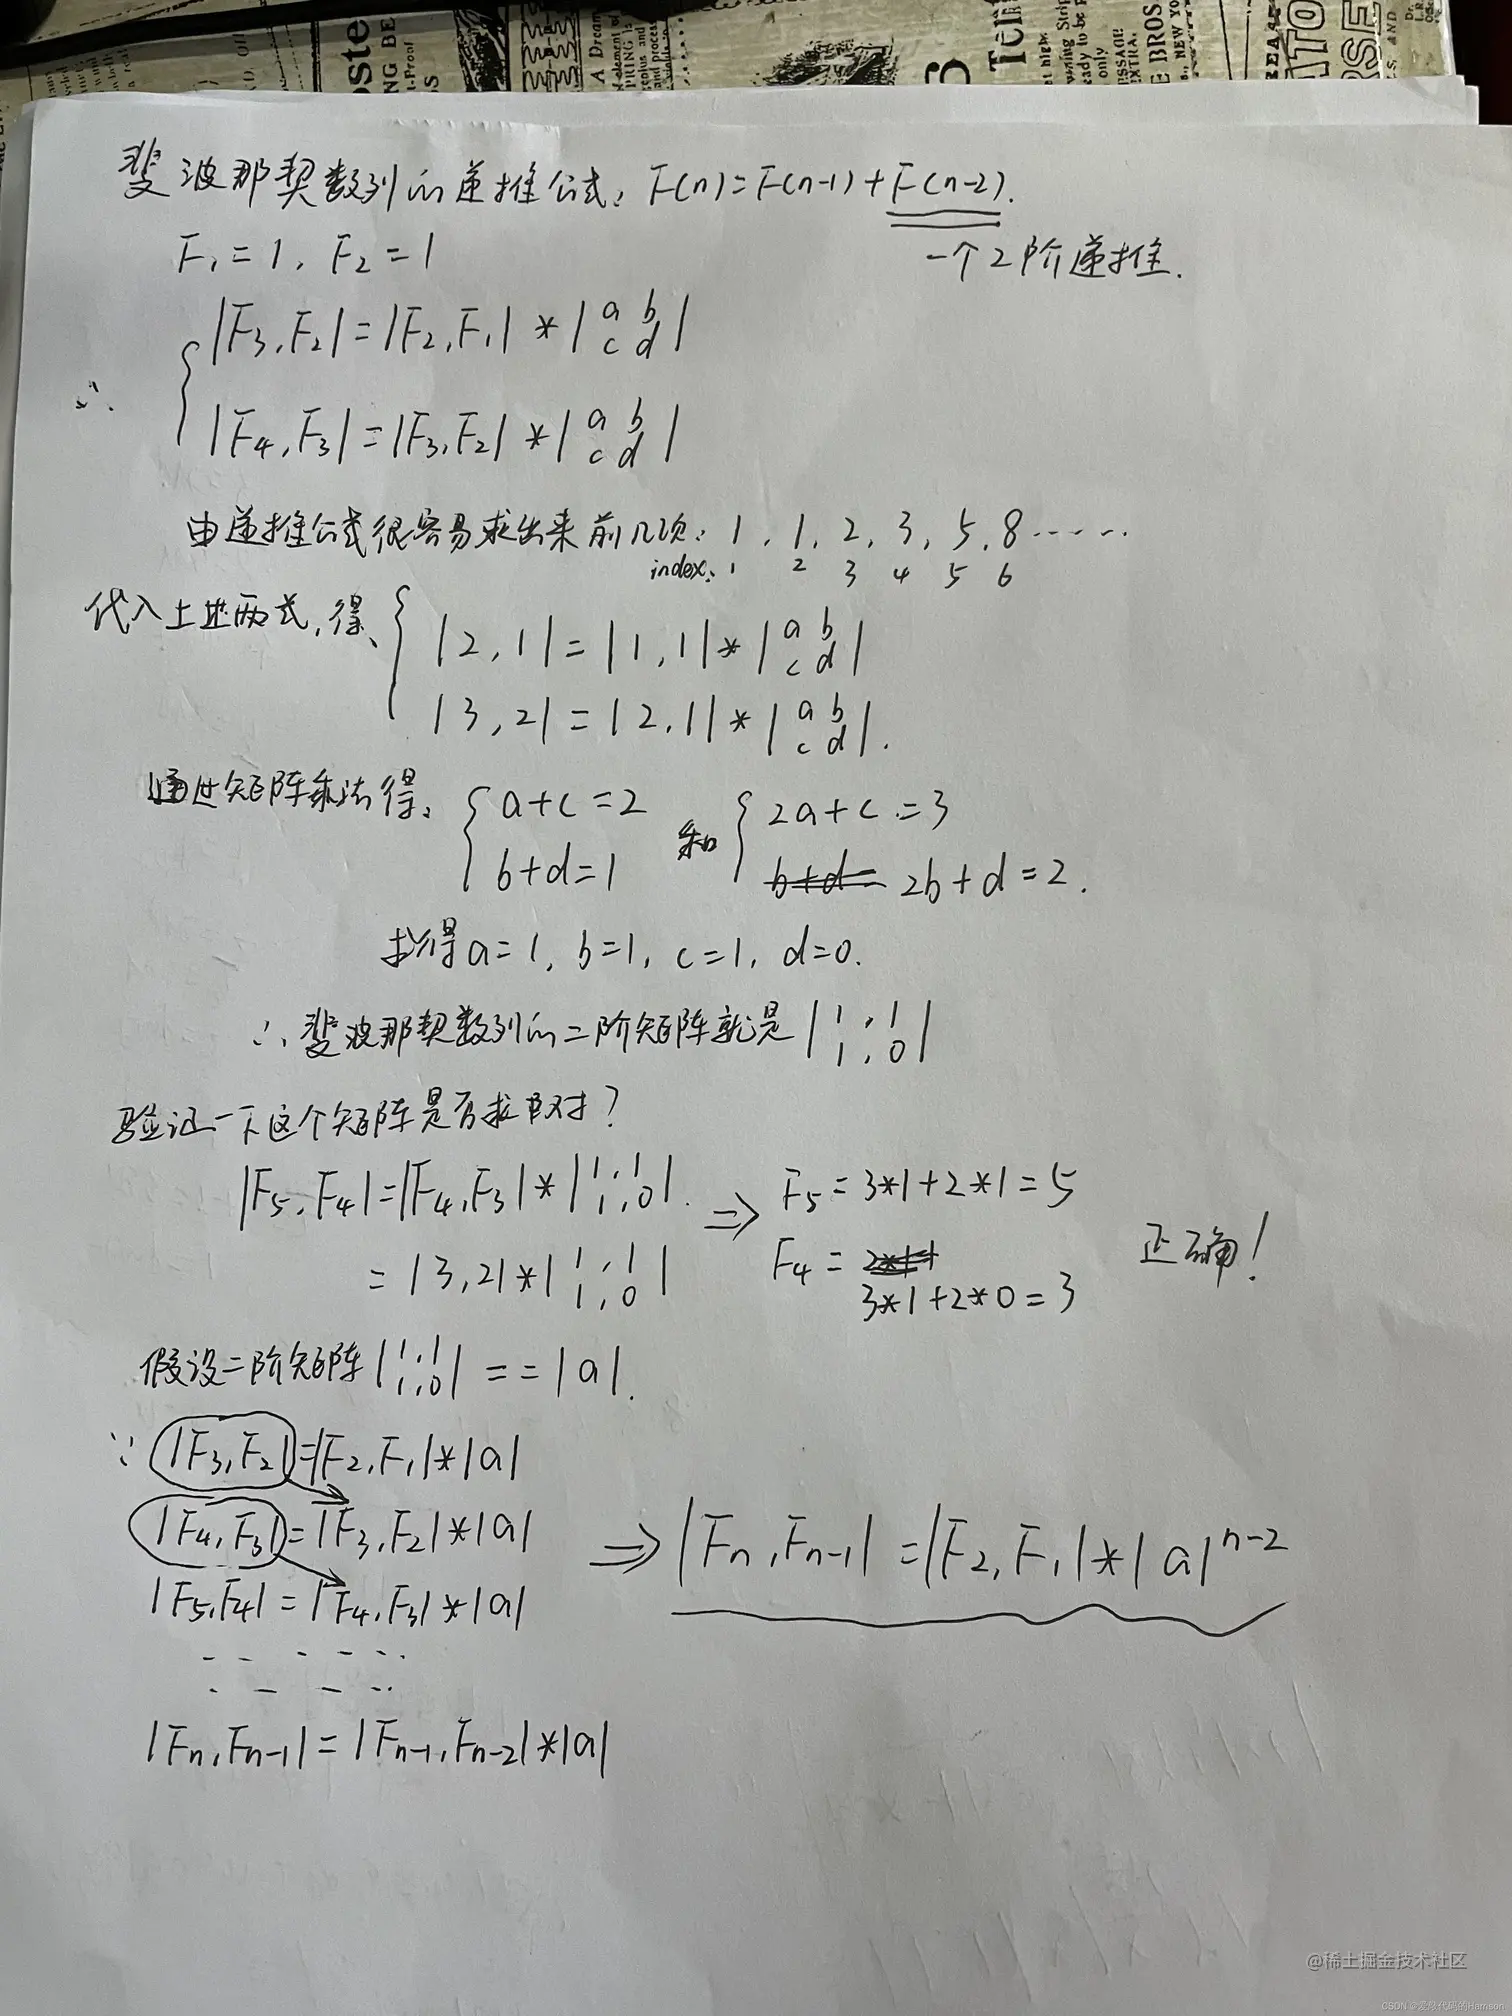 斐波那契数列的递推公式: F(n)=F(n-1)+F(n-2).
F₁=1, F₂=1
一个2阶递推.
|F₃,F₂|=|F₂,F₁|*|a b
c d|
∴
|F₄,F₃|=|F₃,F₂|*|a b
c d|
由递推公式很容易求出来前几项: 1, 1, 2, 3, 5, 8······
index: 1 2 3 4 5 6
代入上述两式,得:
|2,1|=|1,1|*|a b
c d|
|3,2|=|2,1|*|a b
c d|.
通过矩阵乘法得: a+c=2 和 2a+c=3
b+d=1 b+d= 2b+d=2.
求得a=1, b=1, c=1, d=0.
∴斐波那契数列的二阶矩阵就是|1,1
1,0|
验证一下这个矩阵是否求取对?
|F₅,F₄|=|F₄,F₃|*|1,1
1,0|. ⇒ F₅=3*1+2*1=5
=|3,2|*|1,1
1,0| F₄=
3*1+2*0=3
正确!
假设二阶矩阵|1,1
1,0|==|a|.
∵|F₃,F₂|=|F₂,F₁|*|a|
|F₄,F₃|=|F₃,F₂|*|a| ⇒ |Fn,Fn-1|=|F₂,F₁|*|a|ⁿ⁻²
|F₅,F₄|=|F₄,F₃|*|a|
|Fn,Fn-1|=|Fn-1,Fn-2|*|a|
@稀土掘金技术社区
CSDN @爱敲代码的Harrison